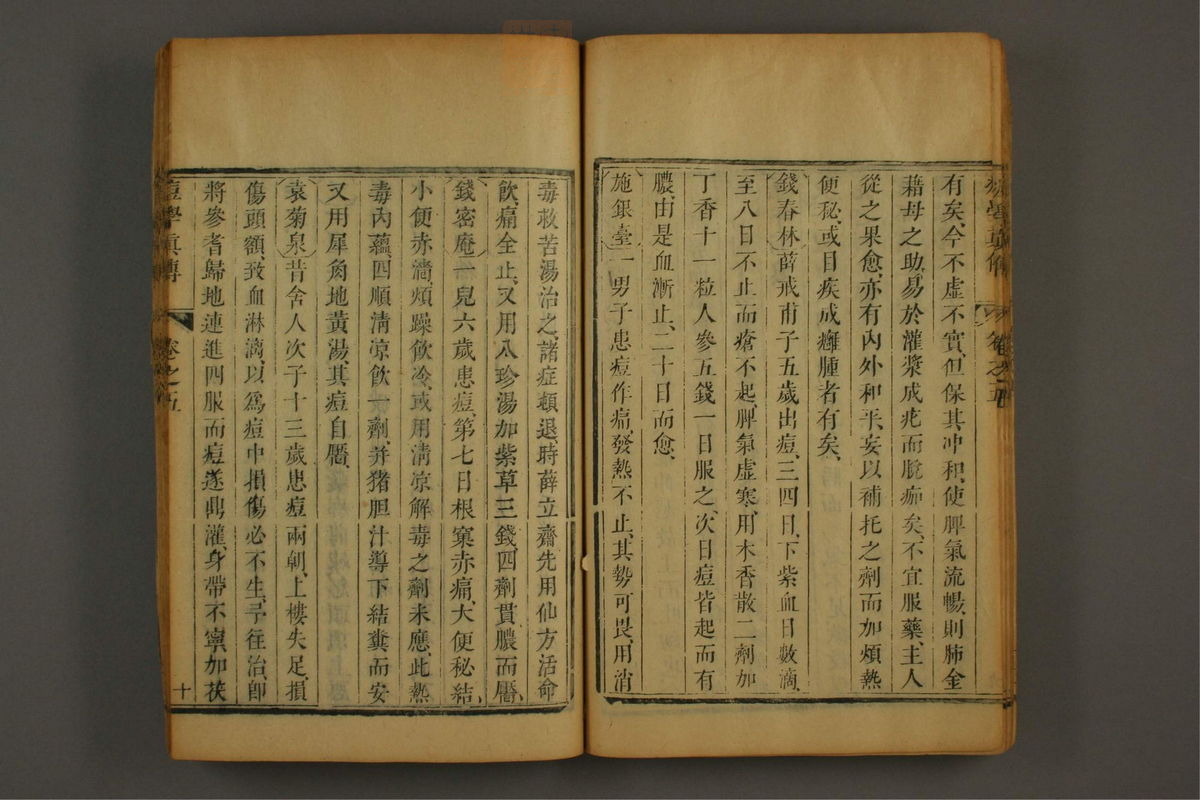 痘學真傳 卷之五
有矣、今不虛不實、但保其冲和、使脾氣流暢、則肺金
藉母之助、易於灌漿成疕而脫痂矣、不宜服藥、主人
從之果愈、亦有內外和平、妄以補托之劑而加煩熱
便秘、或目疾成癰腫者有矣、
錢春林 薛戒甫子五歲出痘、三四日、下紫血日數滴、
至八日不止而瘡不起、脾氣虛寒、用木香散二劑加
丁香十一粒人參五錢一日服之、次日痘皆起而有
膿、由是血漸止、二十日而愈、
施銀臺 一男子患痘作痛、發熱不止、其勢可畏、用消
毒救苦湯治之、諸症頓退、時薛立齋先用仙方活命
飲、痛全止、又用八珍湯加紫草三錢、四劑貫膿而靨、
錢密庵 一兒六歲患痘、第七日根窠赤痛、大便秘結、
小便赤濇、煩躁飲冷、或用清凉解毒之劑未應、此熱
毒內蘊、四順清凉飲一劑、并猪胆汁導下結糞而安
又用犀角地黃湯其痘自靨、
袁菊泉 昔舍人次子十三歲患痘兩朝、上樓失足、損
傷頭額、致血淋漓、以爲痘中損傷必不生、予往治、卽
將參耆歸地連進四服而痘遂鼎灌、身帶不寧加茯
痘學真傳 卷之五 十